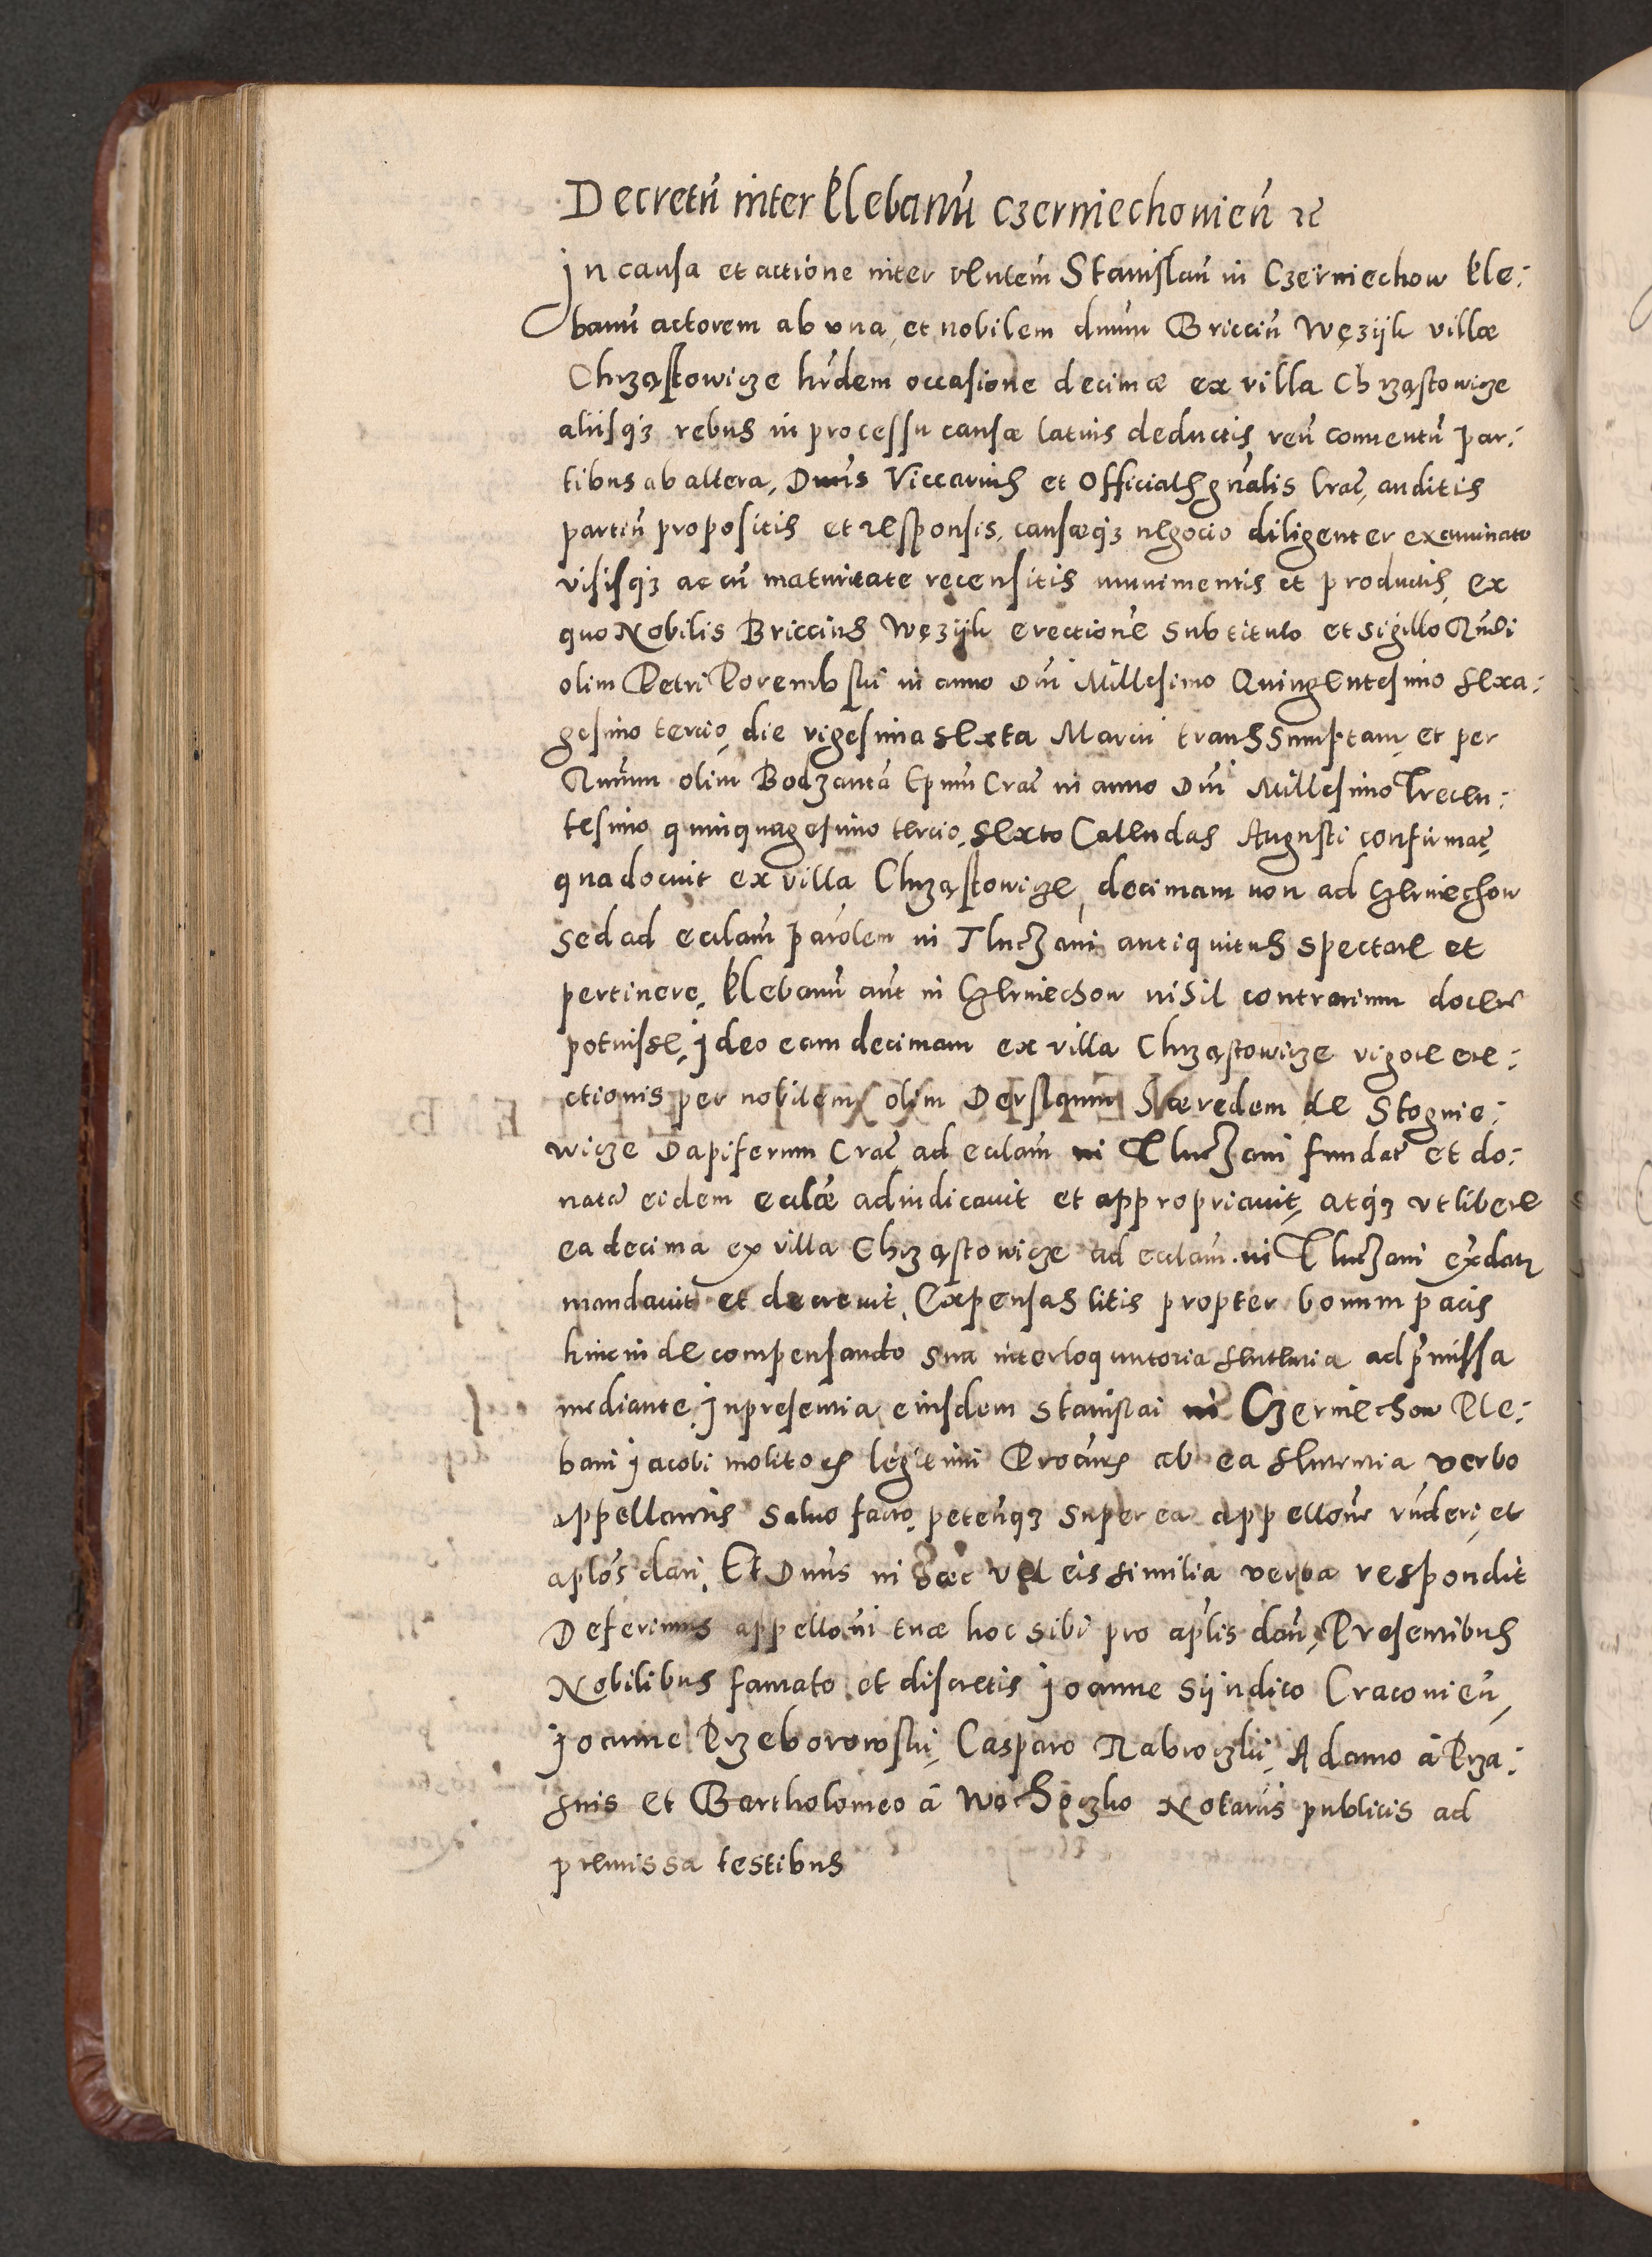 Decretū inter Plebanū Czerniechovien̄ etc̄
In causa et actione inter veñtem Stanislaū in Czerniechow Ple:
banū actorem ab vna, et nobilem dnum Bricciū Węzÿk villæ
Chrząstowicze hr̄dem occasione decimæ ex villa Chrząstowicze
aliisq3 rebus in processu causæ latius deductis reū conuentū par:
tibus ab altera, Dnus Viccarius et Officialis gn̄alis Crac̄, auditis
partiū propositis et responsis, causæq3 negocio diligenter examinato
visisq3 ac cū maturitate recensitis munimentis et productis, ex
quo Nobilis Briccius Węzÿk erectione sub titulo et sigillo Rn̄di
olim Petri Porembski in anno Dn̄i Millesimo Quingentesimo sexa:
gesimo tercio, die vigesima sexta Marcii transsumptam, et per
Rn̄dum olim Bodzantā Ep̄um Crac̄ in anno Dn̄i Millesimo Trecen:
tesimo quinquagesimo tercio, sexto Calendas Augusti confirmat̄,
qua docuit ex villa Chrząstowicze, decimam non ad Czerniechow
sed ad eccl̄am par̄olem in Tluczani antiquitus spectare et
pertinere, Plebanū aut̄ in Czerniechow nihil contrarium docere
potuisse, Ideo eam decimam ex villa Chrząstowicze vigore ere:
ctionis per nobilem olim Derslaum hæredem de Stognio:
wicze Dapiferum Crac̄ ad eccl̄am in Tluczani fundat̄ et do:
natā eidem eccl̄æ adiudicavit et appropriavit, atq3 vt libere
ea decima ex villa Chrząstowicze ad eccl̄am in Tluczani exdatur
mandavit et decrevit, Expensas litis propter bonum pacis
hincinde compensando sua interloquutoria sententia ad p̄missa
mediante, In presentia eiusdem Stanislai in Czerniechow Ple:
bani Iacobi molitoris legitimi Procuris ab ea sententia verbo
appellantis salvo facto, petenq3 super ea appellone r̄nderi, et
aplos dari, Et Dnus in hæc vel eis similia verba respondit
Deferimus appelloni tuæ hoc sibi pro aplis dan̄, Presentibus
Nobilibus famato et discretis Ioanne Sÿndico Cracovien̄,
Ioanne Przeborowski, Casparo Rabroczki, Adamo à Prza:
snis et Bartholomeo à Wochoczko Notariis publicis ad
premissa testibus